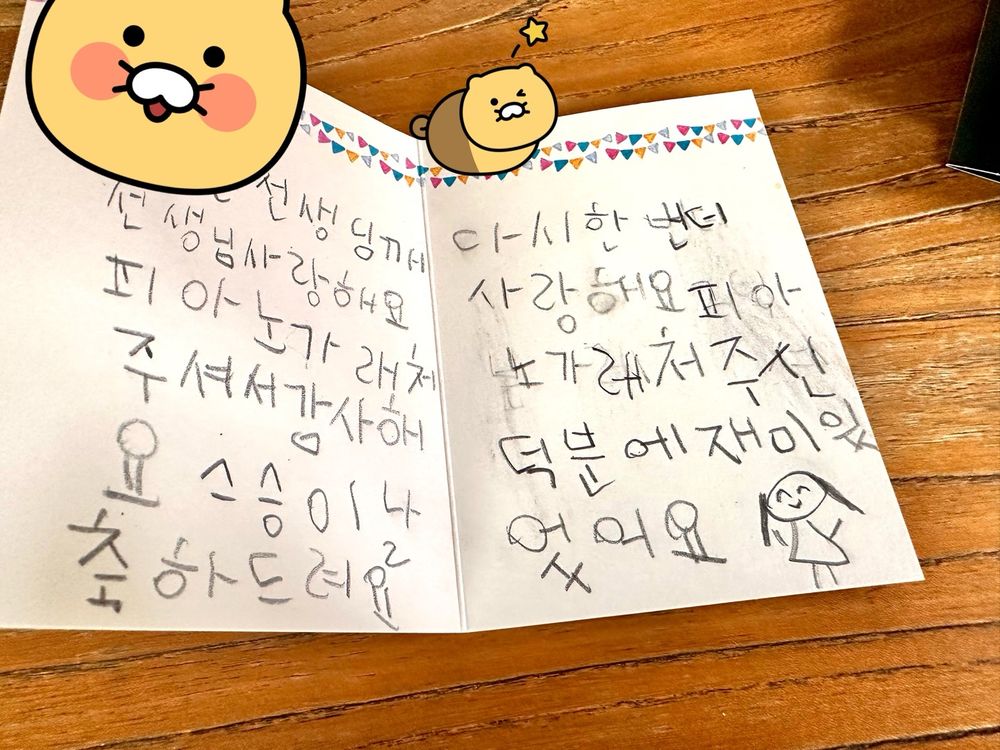 선생딩께
선생님사랑해요
피아눈가래처
주셔서감사해
요 스승이나
추하드려요
다시한번더
사랑해요피아
노가래처주신
덕분에재미있
엇의요